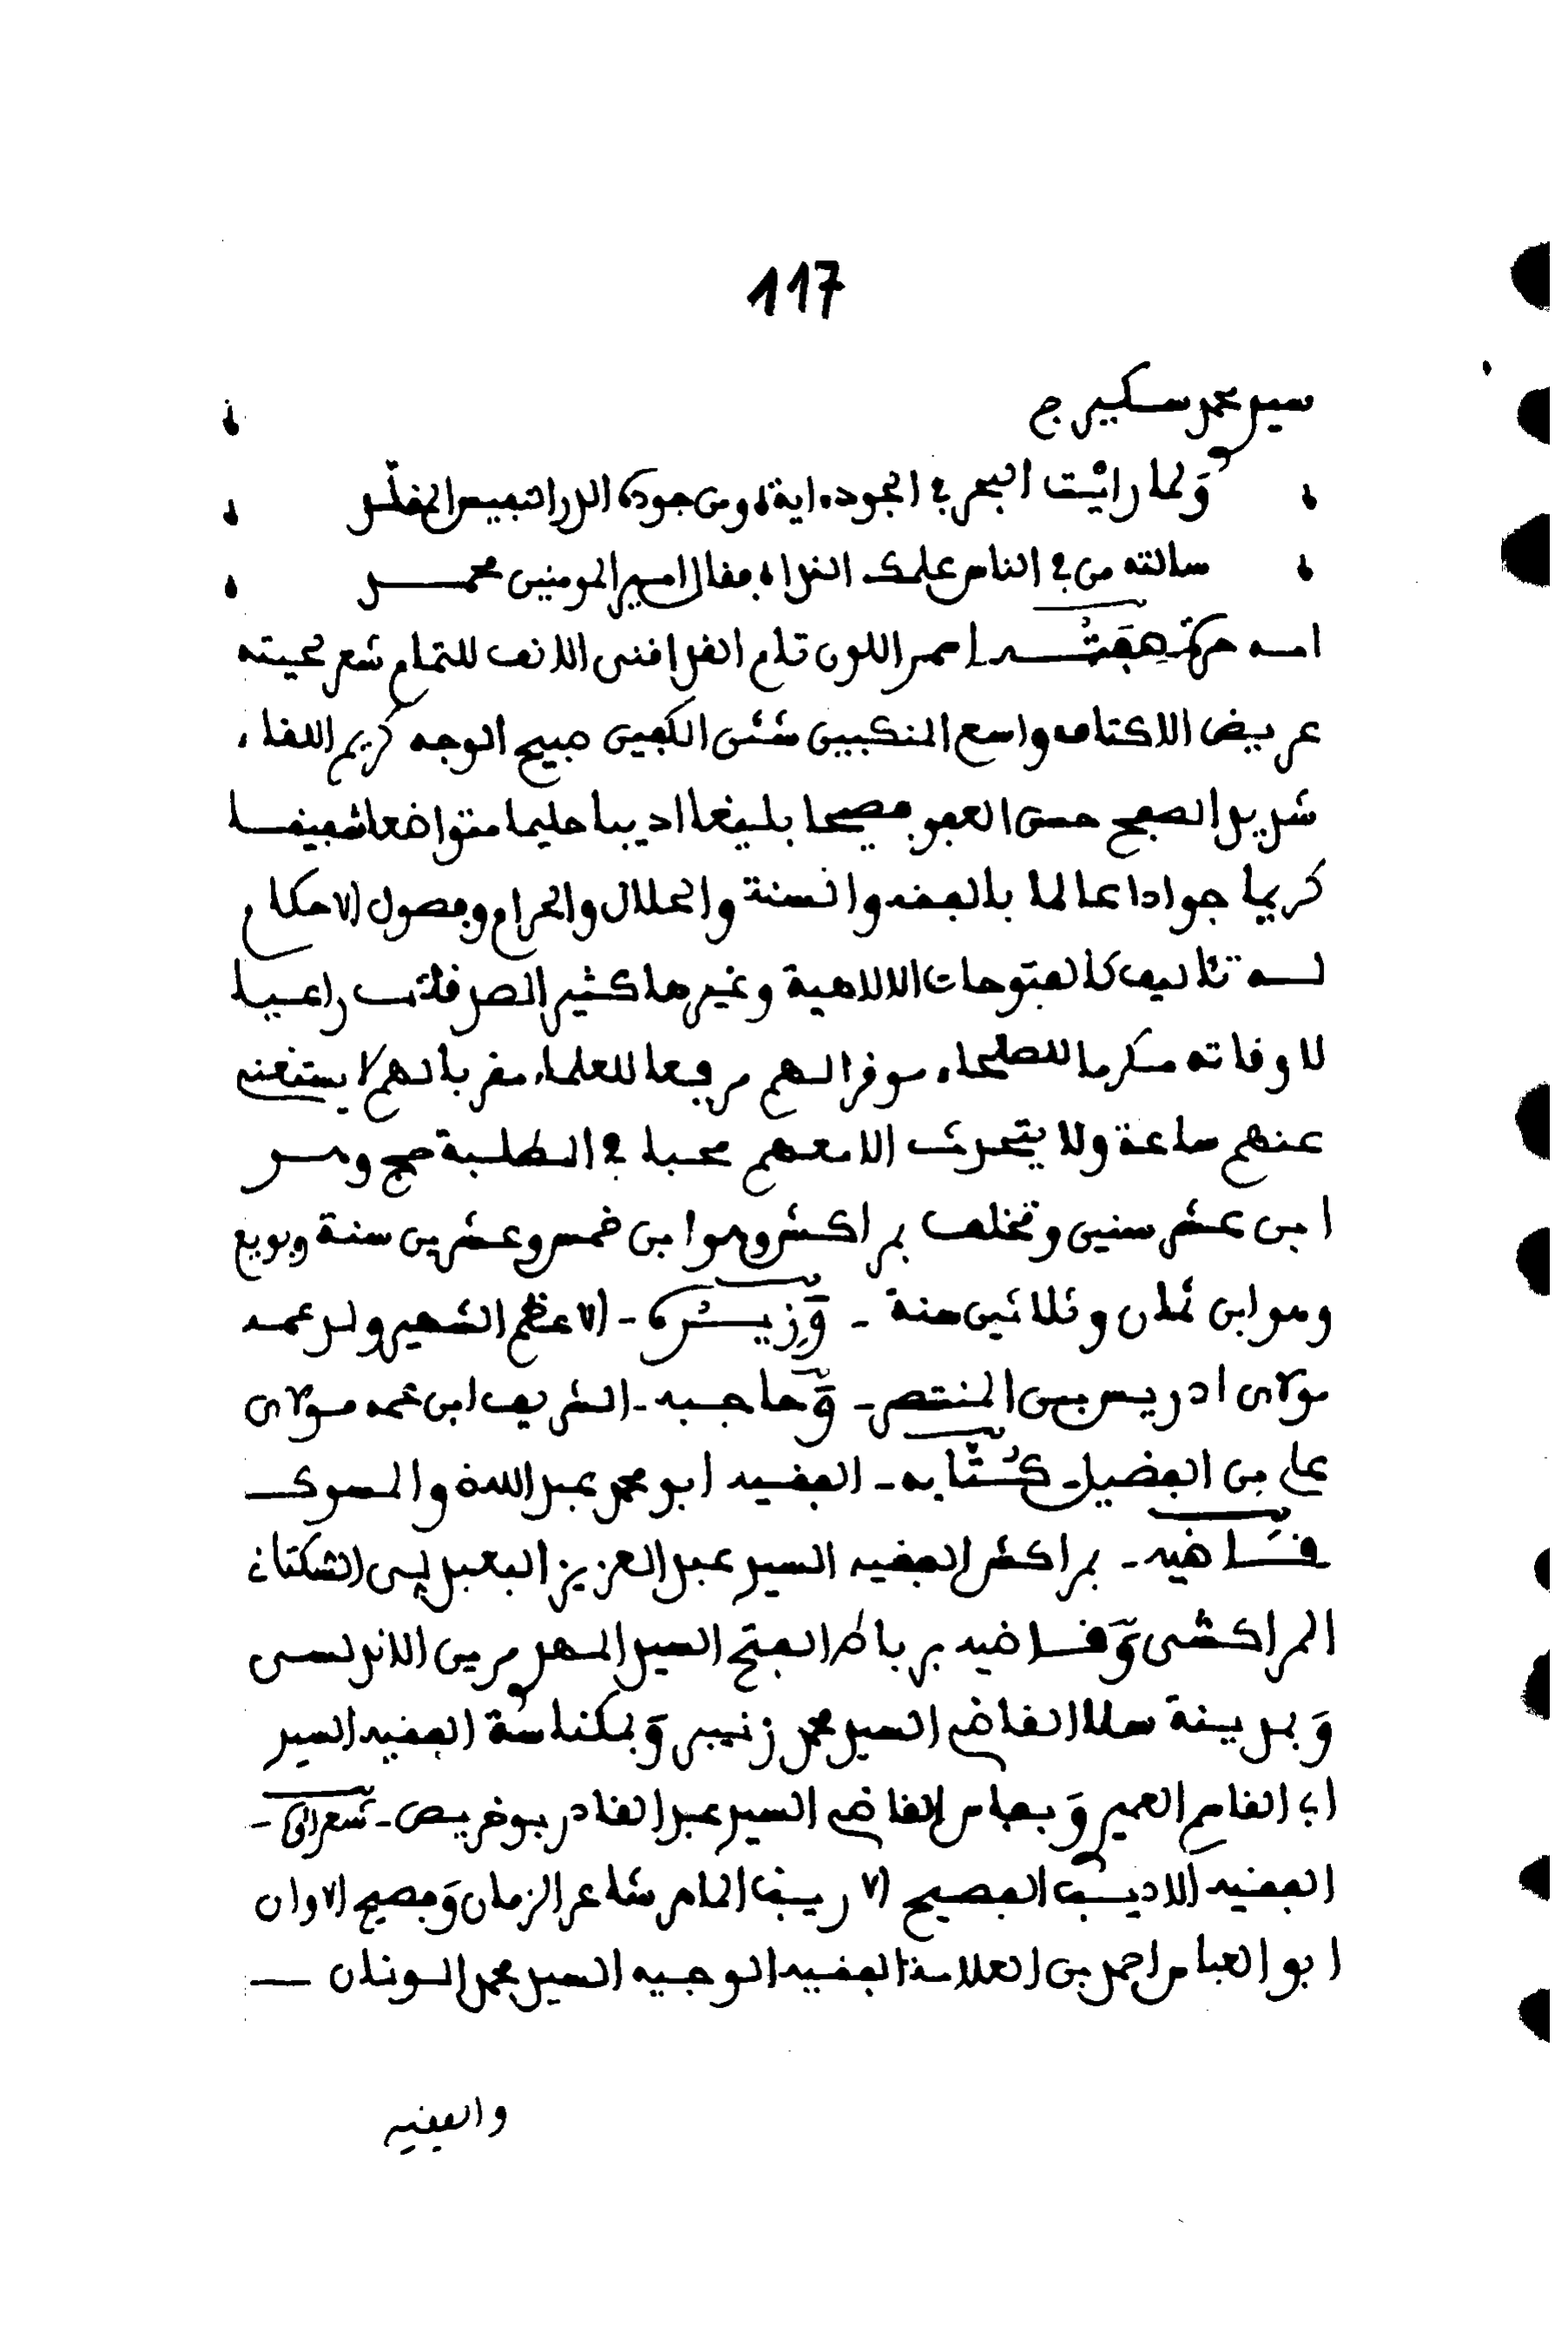 117
سيد محمد سكيرج
وَلما رائيت البحر في الجود ءاية ومن جوده الدر النفيس المقلّد
سالته من في الناس علمك الندا فقال امير المومنين محمد
امه حركة صِفَتُه اسمر اللون تام القد اقنى الانف للتمام شعر لحيته
عريض الاكتاف واسع المنكبين شثن الكفين صبيح الوجه كريم اللقاء
شديد الصفح حسن العفو فصيحا بليغا اديبا حليما متواضعا شفيفا
كريما جوادا عالما بالفقه والسنة والحلال والحرام وفصول الاحكام
لـه تئاليف كالفتوحات الالاهية وغيرها كثير الصدقات راعيا
لاوقاته مكرما للصلحاء موقرا لهم مرفعا للعلماء مقربا لهم لا يستغنى
عنهم ساعة ولا يتحرك الا معهم محبا في الطلبة حج وهـو
ابن عشر سنين وتخلف بمراكش وهو ابن خمس وعشرين سنة وبويع
وهو ابن ثمان وثلاثين سنة - وَزيـره - الاعظم الشهير ولد عمه
مولاى ادريس بن المنتصر - وَحاجبه - الشريف ابن عمه مولاى
على بن الفضيل - كُتّابه - الفقيه ابو محمد عبد الله والسوى
قـاضيه - بمراكش الفقيه السيد عبد العزيز العبدلي الشكتاني
المراكشى وَقـاضيه برباط الفتح السيد المهدي مرين الاندلسى
وَبمدينة سلا القاضي السيد محمد زنيبر وَبمكناسة الفقيه السيد
ابي القاسم العمير وَبفاس القاضي السيد عبد القادر بوخريص - شعراؤه -
الفقيه الاديب الفصيح الاريب الماهر شاعر الزمان وَفصيح الاوان
ابو العباس احمد بن العلامة الفقيه الوجيه السيد محمد الونان
والفقيه